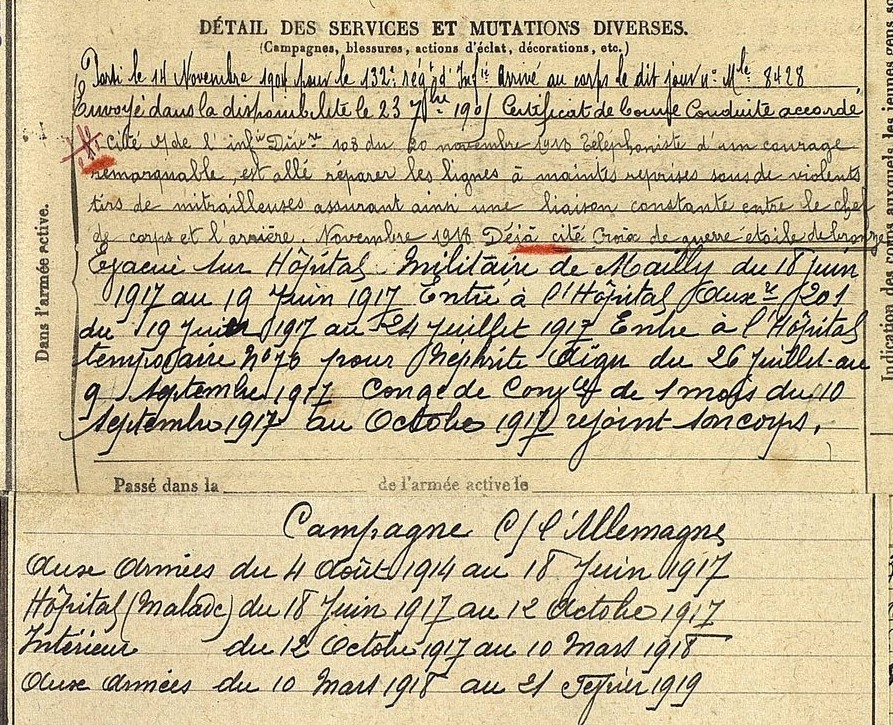 DÉTAIL DES SERVICES ET MUTATIONS DIVERSES.
(Campagnes, blessures, actions d'éclat, décorations, etc.)
Parti le 14 Novembre 1904 pour le 132e régt d'Infie Arrivé au corps le dit jour no Mle 8428
Envoyé dans la disponibilité le 23 7bre 190 Certificat de bonne Conduite accordé
cité de l'infie Divre 108 du 20 novembre 1918 Téléphoniste d'un courage
remarquable, est allé réparer les lignes à maintes reprises sous de violents
tirs de mitrailleuses assurant ainsi une liaison constante entre le chef
de corps et l'arrière. Novembre 1918 Déjà cité Croix de guerre étoile de bronze
Evacué sur Hôpital Militaire de Mailly du 18 Juin
1917 au 19 Juin 1917 Entré à l'Hôpital Auxre 201
du 19 Juin 1917 au 24 Juillet 1917 Entre à l'Hôpital
temporaire No 70 pour Néphrite Aigu du 26 Juillet au
9 Septembre 1917 Congé de Conv de 1 mois du 10
Septembre 1917 au Octobre 1917 rejoint son corps.
Passé dans la de l'armée active le
Dans l'armée active.
Indications des corps auxquels des jeunes
Campagne C/ l'Allemagne
Aux Armées du 4 Août 1914 au 18 Juin 1917
Hôpital (Malade) du 18 Juin 1917 au 12 Octobre 1917
Intérieur du 12 Octobre 1917 au 10 Mars 1918
Aux Armées du 10 Mars 1918 au 21 Février 1919